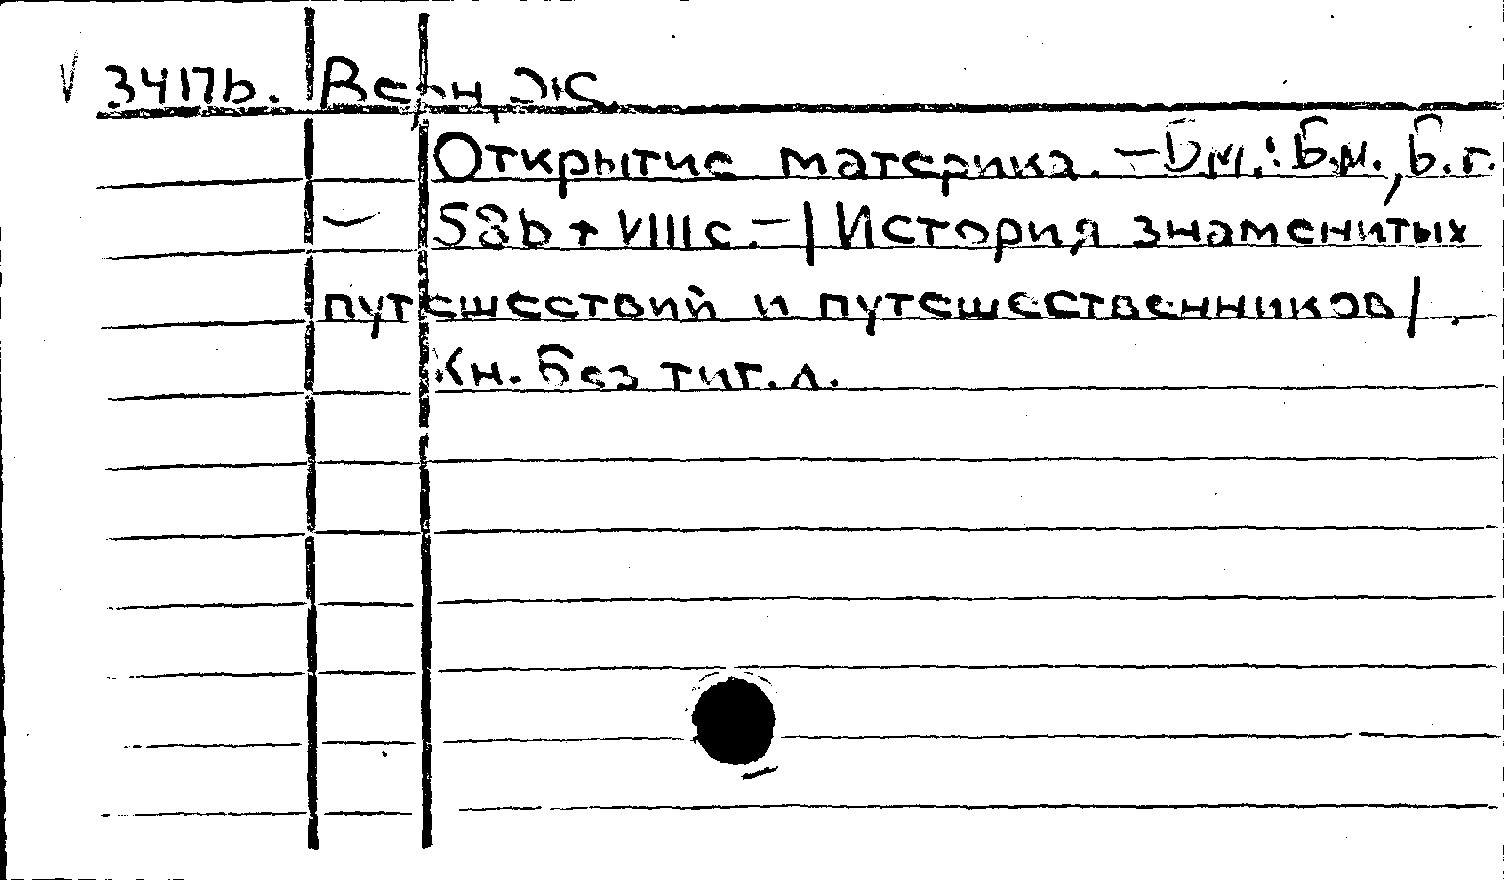 V 3417b. Верн, Ж.
Открытие материка. – Б.м.: Б.м., Б.г.
– 58b + VIIIc. – | История знаменитых
путешествий и путешественников | .
Кн. без тит. л.